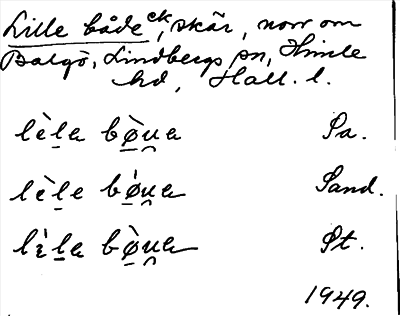 Lille både ck, skär, norr om
Balgö, Lindbergs sn, Himle
hd, Hall. l.
lèl̲e bø̲̀u̯a Sa.
lèl̲e bǿ̲u̯a Sand.
lìl̲a bø̲̀u̯a St.
1949.